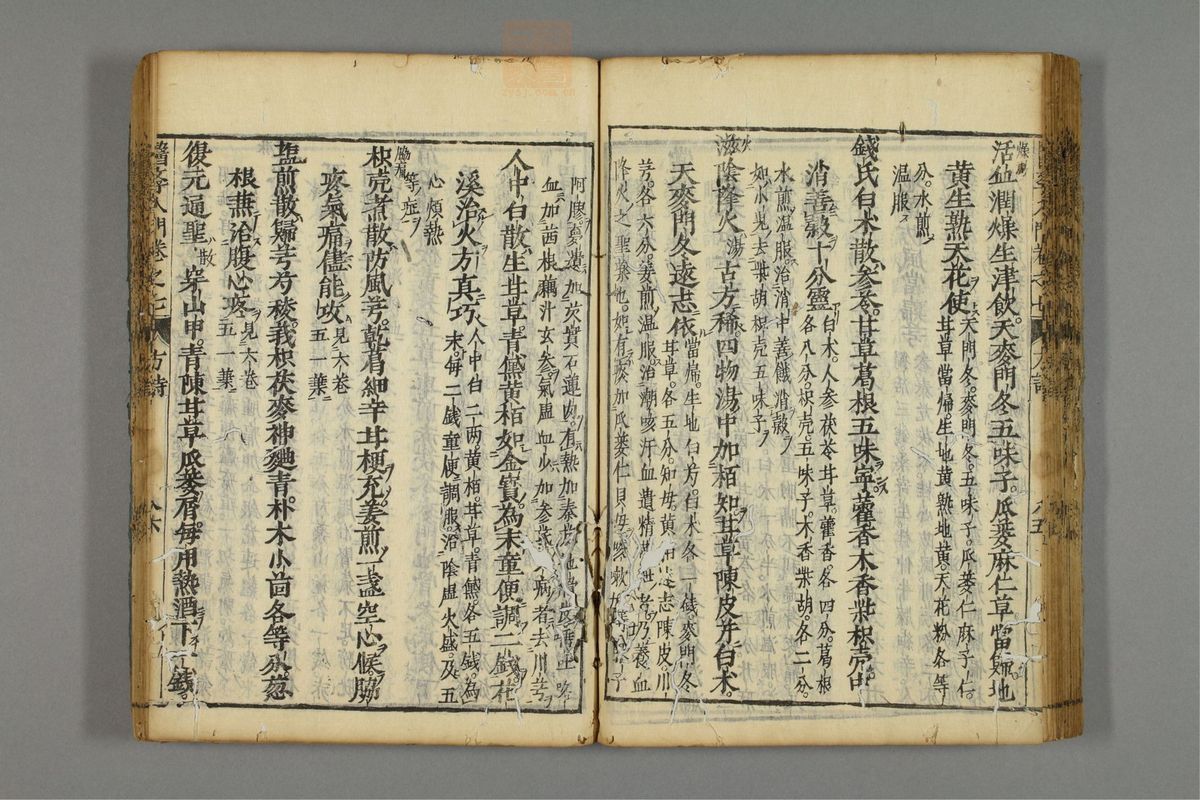 活血潤燥生津飲天麥門冬五味子瓜蔞麻仁草當歸地
黄生熟天花使
天門冬麥門冬五味子瓜蔞仁麻子仁
甘草當歸生地黄熟地黄天花粉各等
分水煎
温服
錢氏白朮散參苓甘草葛根五味寧藿香木香柴枳壳中
消善穀十分靈
白朮人參茯苓甘草藿香各四分葛根
各八分枳壳五味子木香柴胡各二分
水煎温服治消中善餓消穀
如水見去柴胡枳壳五味子
滋陰降火湯古方稀四物湯中加栢知甘草陳皮并白朮
天麥門冬遠志依
當歸生地白芍白朮各一錢麥門冬
甘草各五分知母黄 志陳皮川
芎各六分姜煎温服治潮咳汗血遺精 乃養血
降火之聖藥也如有痰加瓜蔞仁貝母咳嗽加 子
阿膠 遺加茨實石蓮肉有熱加秦艽
血加茜根藕汁玄參氣虚血少加參 病者去川芎
人中白散生甘草青黛黄栢如金寳為末童便調二錢
溪治火方真巧
人中白二两黄栢甘草青黛各五錢為
末每二錢童便調服治陰虚火盛及五
心煩熱
等症
枳壳煮散防風芎乾葛細辛甘梗充姜煎一盞空心候脇
疼氣痛儘能攻
見六卷
五一藥
塩煎散歸芎芍稜莪枳茯麥神麯青朴木小茴各等分葱
根䀋治腹心疼
見六卷
五一藥
復元通聖散穿山甲青陳甘草瓜蔞屑每用熱酒下一錢
醫學入門卷之七 方詩 八六
八五